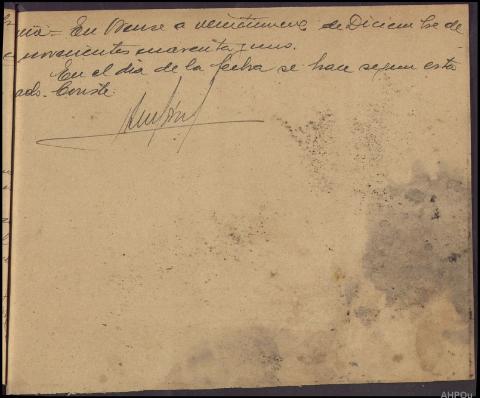 En Orense a veintinueve de Diciembre de
novecientos cuarenta y uno.
En el dia de la fecha se han segun está
Conste.
AHPOu